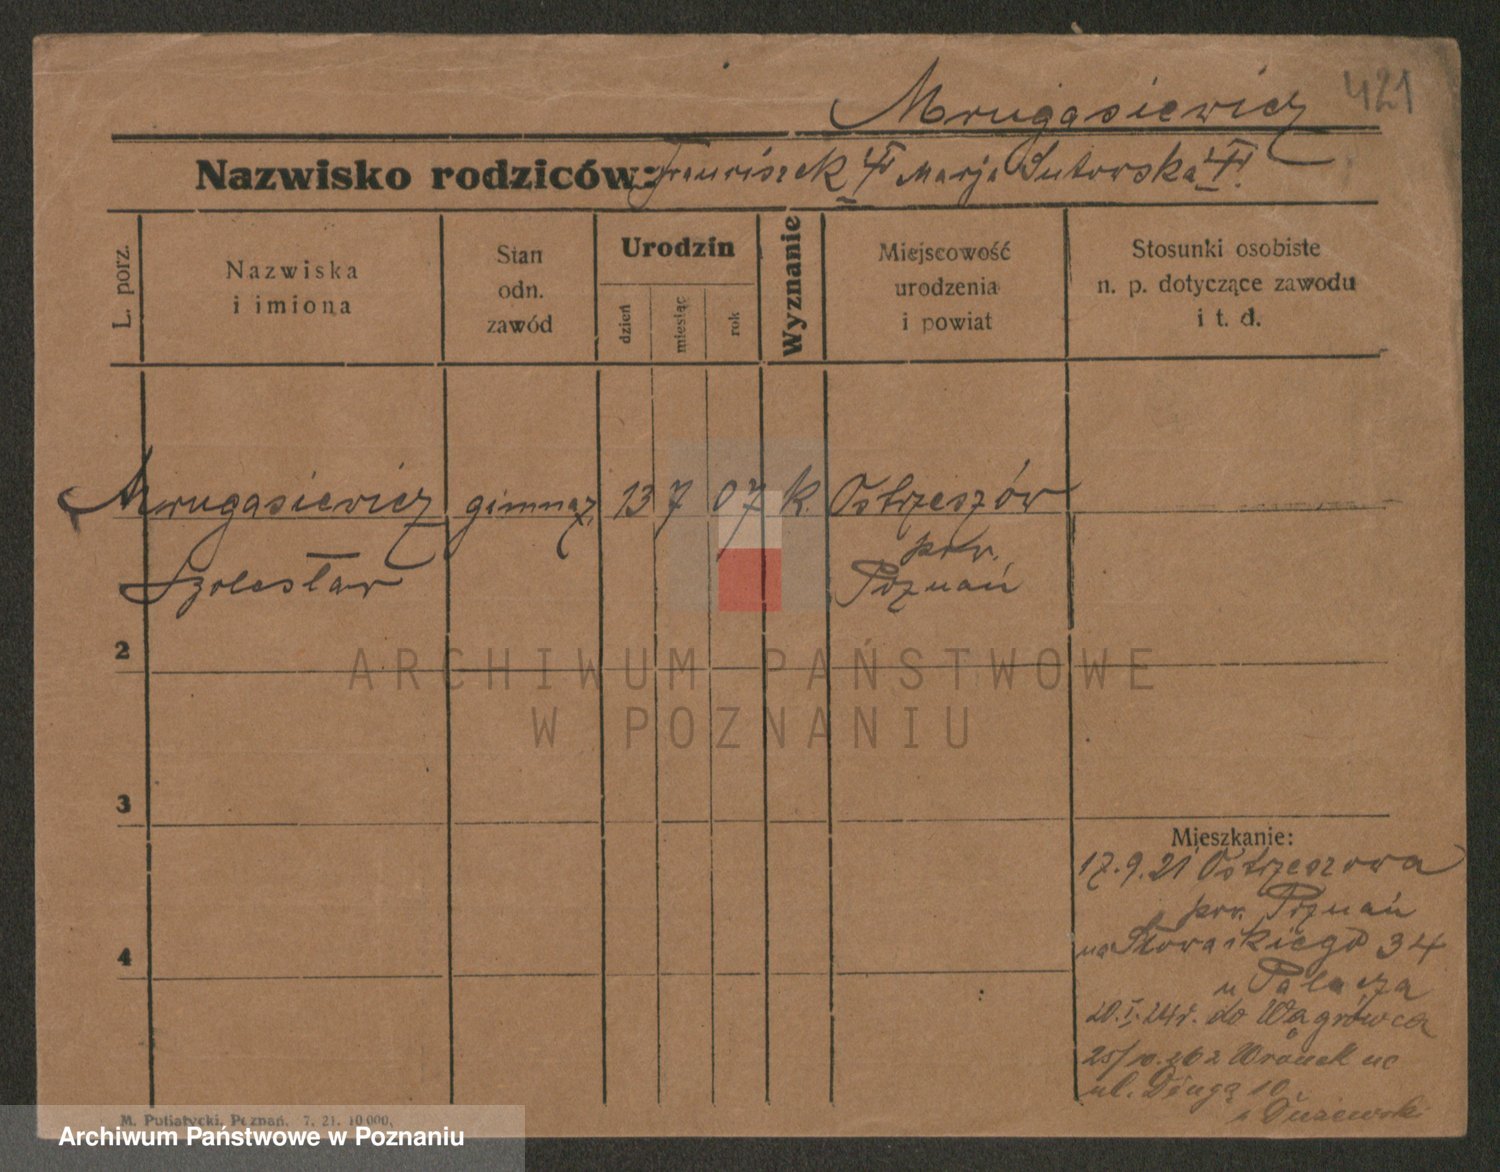 Mrugasiewicz 421
Nazwisko rodziców: Franciszek Marja Sutorska
L. porz.
Nazwiska
i imiona
Stan
odn.
zawód
Urodzin
dzień
miesiąc
rok
Wyznanie
Miejscowość
urodzenia
i powiat
Stosunki osobiste
n. p. dotyczące zawodu
i t. d.
Mrugasiewicz gimnaz. 13 7 07 k. Ostrzeszów
pow.
Poznań
2
ARCHIWUM PAŃSTWOWE
W POZNANIU
3
Mieszkanie:
17.9.21 Ostrzeszowa
pow. Poznań
na Słowackiego 34
4
u Palacza
20.I.24r. do Wągrówca
25/10.26 z Wronek na
ul. Długą 10
M. Putiatycki, Poznań. 7. 21. 10 000.
Archiwum Państwowe w Poznaniu